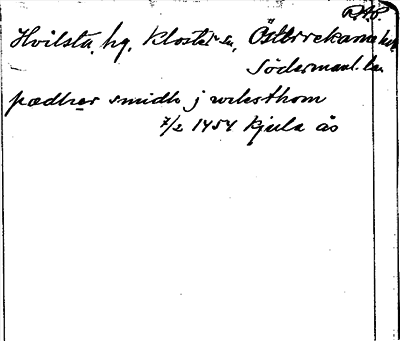 RAP.
Hvilsta, hg, Kloster sn, Österrekarne hd,
Södermanl. län
pædher smidh j welesthom
7/2 1454 Kjula ås